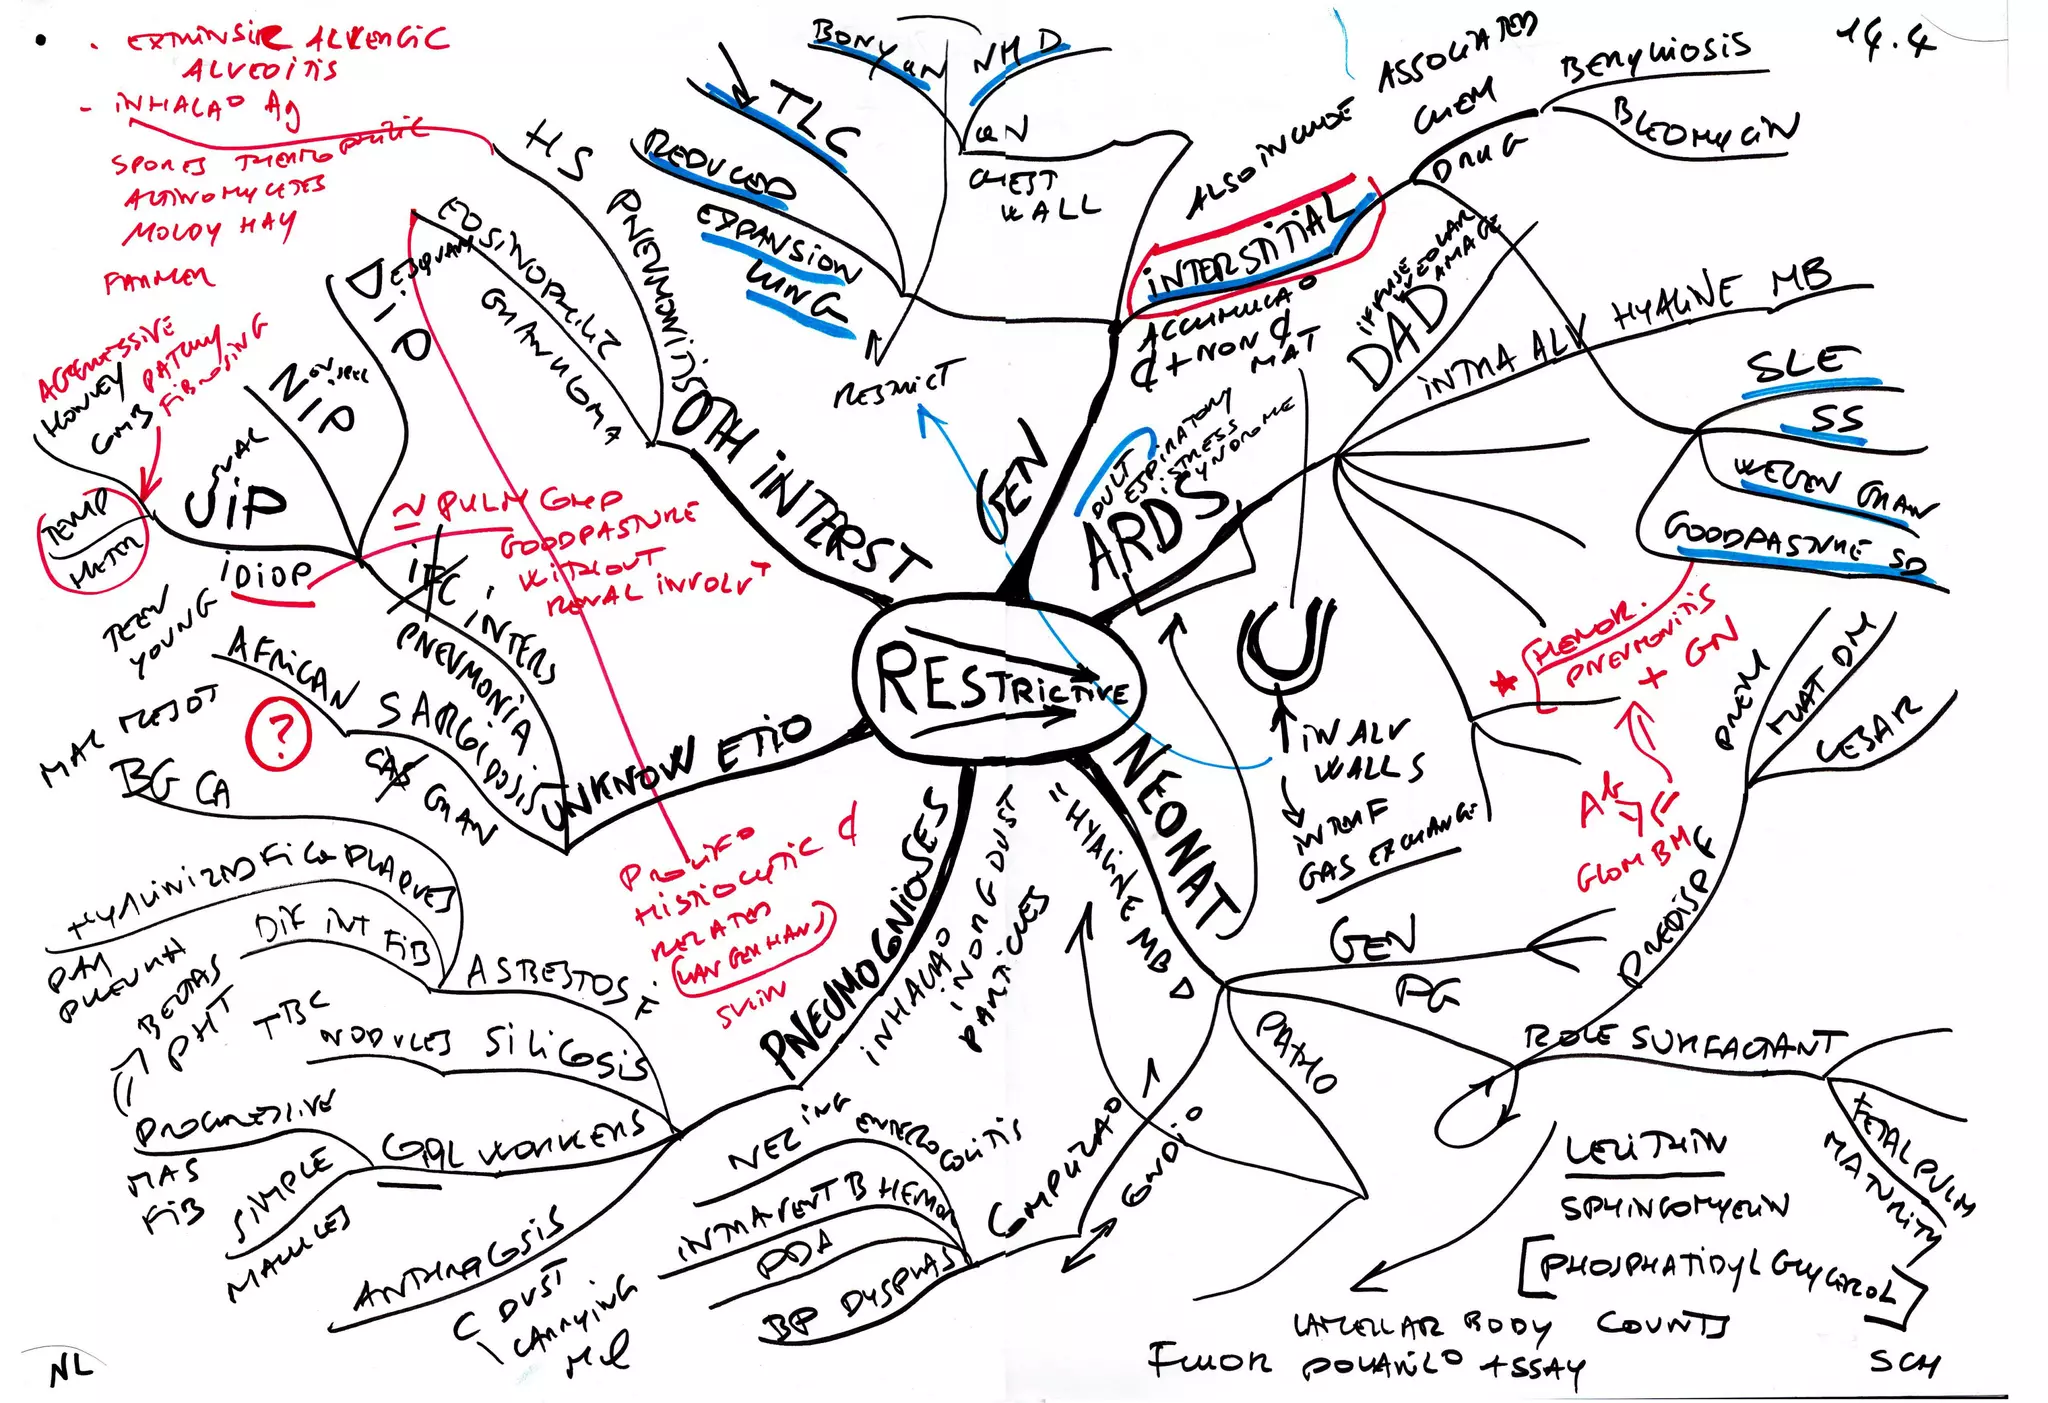 14.4
ALVEOLITIS
- INHALAO Ag
ACTINOMYCETES
MOLDY HAY
FARMER
HS PNEUMONITIS
EOSINOPHILIC
GRANUGOMA
OTH INTERST
DESQUAM
DIP
NIP
USUAL
UIP
IDIOP
AGGRESSIVE
HONEY
PATCHY
FIBROSING
TEMP
HETER
TEEN
YOUNG
~ PULM COMP
GOODPASTURE
WITHOUT
RENAL INVOLVT
INTERS
PNEUMONIA
AFRICAN
SARCOIDOSIS
GRAN
?
UNKNOW ETIO
BONY
NMD
↓ TLC
REDUCED
EXPANSION
LUNG
CHEST
WALL
N
RESTRICT
GEN
ALSO INCLUDE
INTERSTITIAL
ACCUMULAO
¢ + NON ¢
MAT
ASSOCIATED
CHEM
DRUG
BERYLIOSIS
BLEOMYCIN
SLE
SS
WEGEN GRAN
GOODPASTURE SD
HEMOR.
PNEUMONITIS
+ GN
GLOM BM
ADULT
RESPIRATORY
DISTRESS
SYNDROME
ARDS
DIFFUSE
ALVEOLAR
DAMAGE
DAD
INTRA ALV
HYALINE MB
↑ IN ALV
WALLS
↓
INTERF
GAS EXCHANGE
RESTRICTIVE
NEONAT
"HYALINE MB D
GEN
PG
PREDISP F
PREM
MAT DM
CESAR
ROLE SURFACTANT
FETAL PULM
MATURITY
LECITHIN
SPHINGOMYELIN
[PHOSPHATIDYL GLYCEROL]
LAMELLAR BODY COUNTS
FLUOR POLARIZO ASSAY
SCH
PATHO
COMPLICAO
NECING
ENTEROCOLITIS
INTRAVENT B HEMOR
PDA
BP DYSPLAS
PNEUMOGNIOSES
INHALAO
INORG DUST
PARTICLES
PROLIFO
HISTIOCYTIC ¢
RELATED
LANGERHANS
SKIN
ASBESTOS F.
BG CA
HYALINIZNG FIB CA PLAQUES
DIF INT FIB
PAR
PLEURA
TBC
NODULES SILICOSIS
COAL WORKERS
PROGRESSIVE
MAS
FIB
SIMPLE
MACULES
ANTHRACOSIS
C DUST
CARRYING
NL